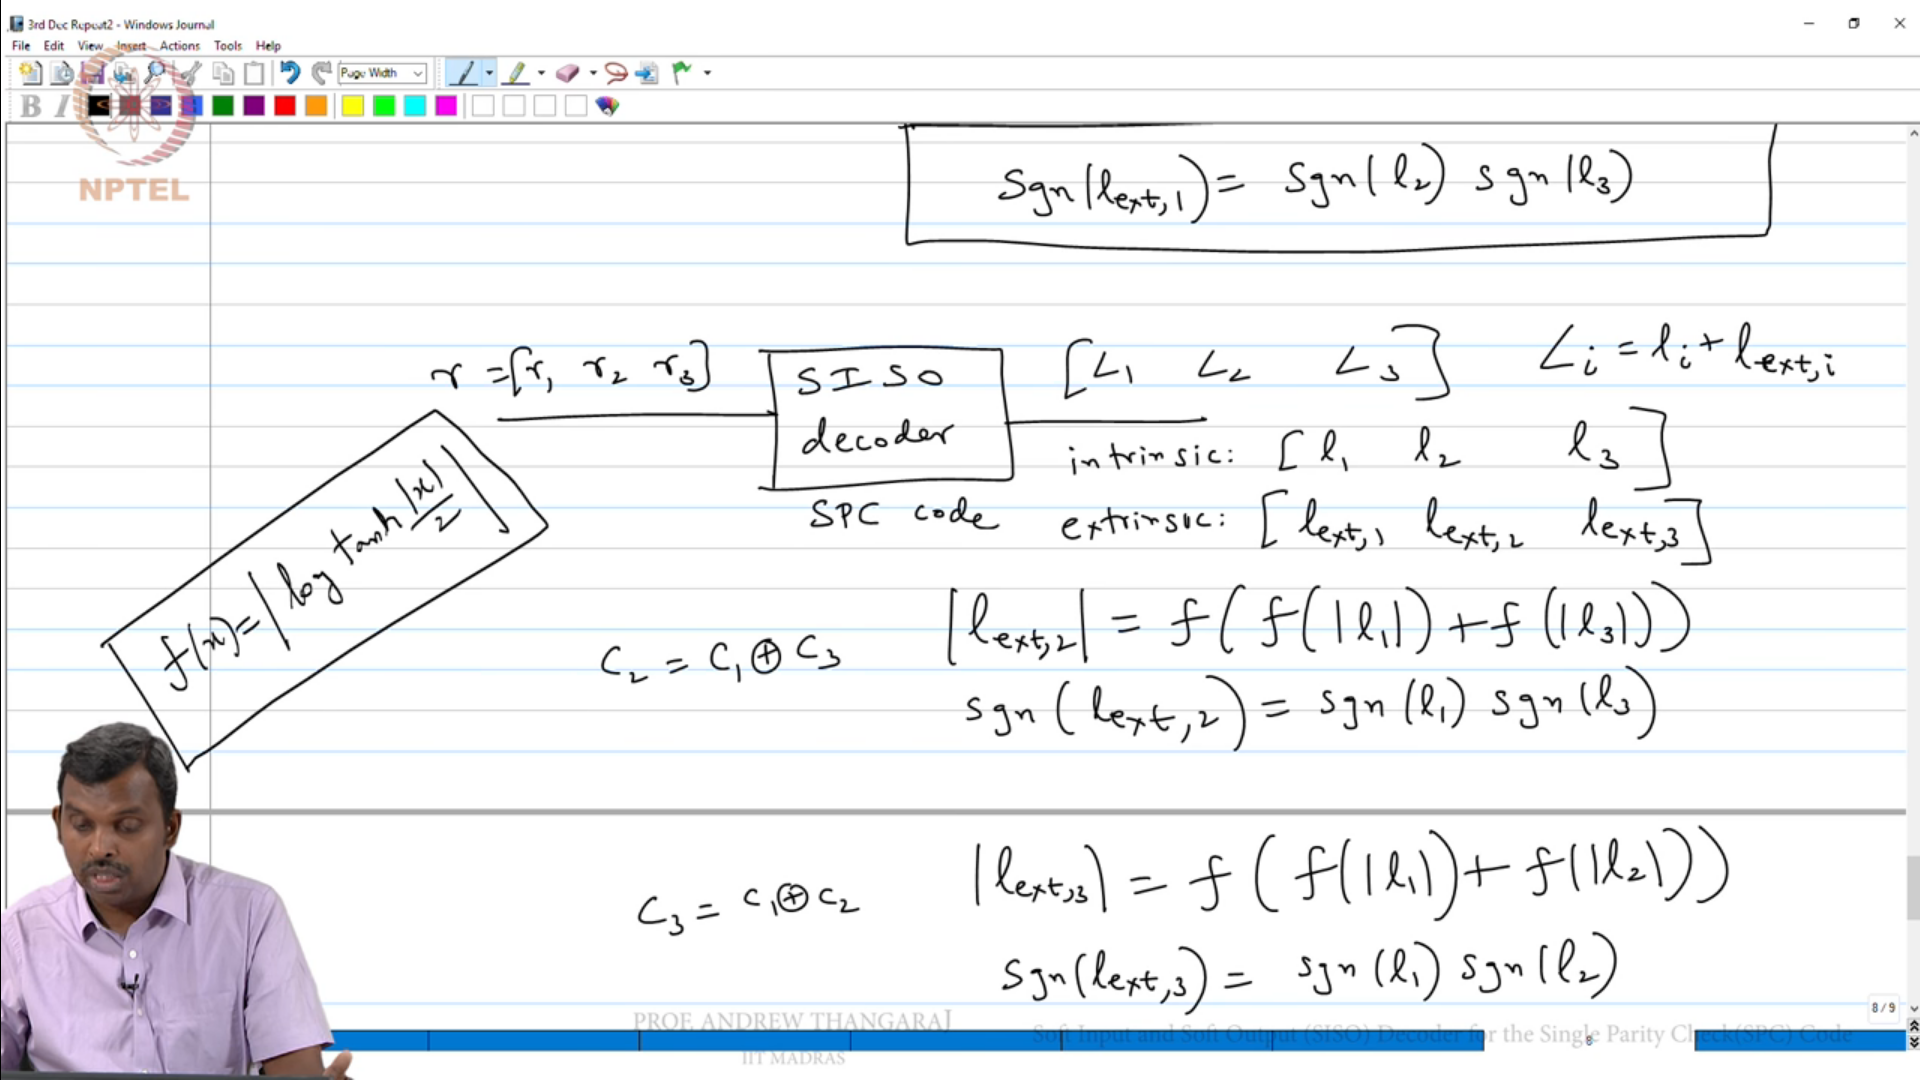 3rd Dec Repeat2 - Windows Journal
File Edit View Insert Actions Tools Help
Page Width
B I
NPTEL
Sgn(l_ext,1) = Sgn(l_2) sgn(l_3)
r = [r_1 r_2 r_3]
SISO
decoder
SPC code
[L_1 L_2 L_3] L_i = l_i + l_ext,i
intrinsic: [l_1 l_2 l_3]
extrinsic: [l_ext,1 l_ext,2 l_ext,3]
f(x) = |log tanh |x|/2|
C_2 = C_1 ⊕ C_3
|l_ext,2| = f(f(|l_1|) + f(|l_3|))
sgn(l_ext,2) = sgn(l_1) sgn(l_3)
C_3 = C_1 ⊕ C_2
|l_ext,3| = f(f(|l_1|) + f(|l_2|))
Sgn(l_ext,3) = sgn(l_1) sgn(l_2)
8 / 9
PROF. ANDREW THANGARAJ
IIT MADRAS
Soft Input and Soft Output (SISO) Decoder for the Single Parity Check(SPC) Code
8